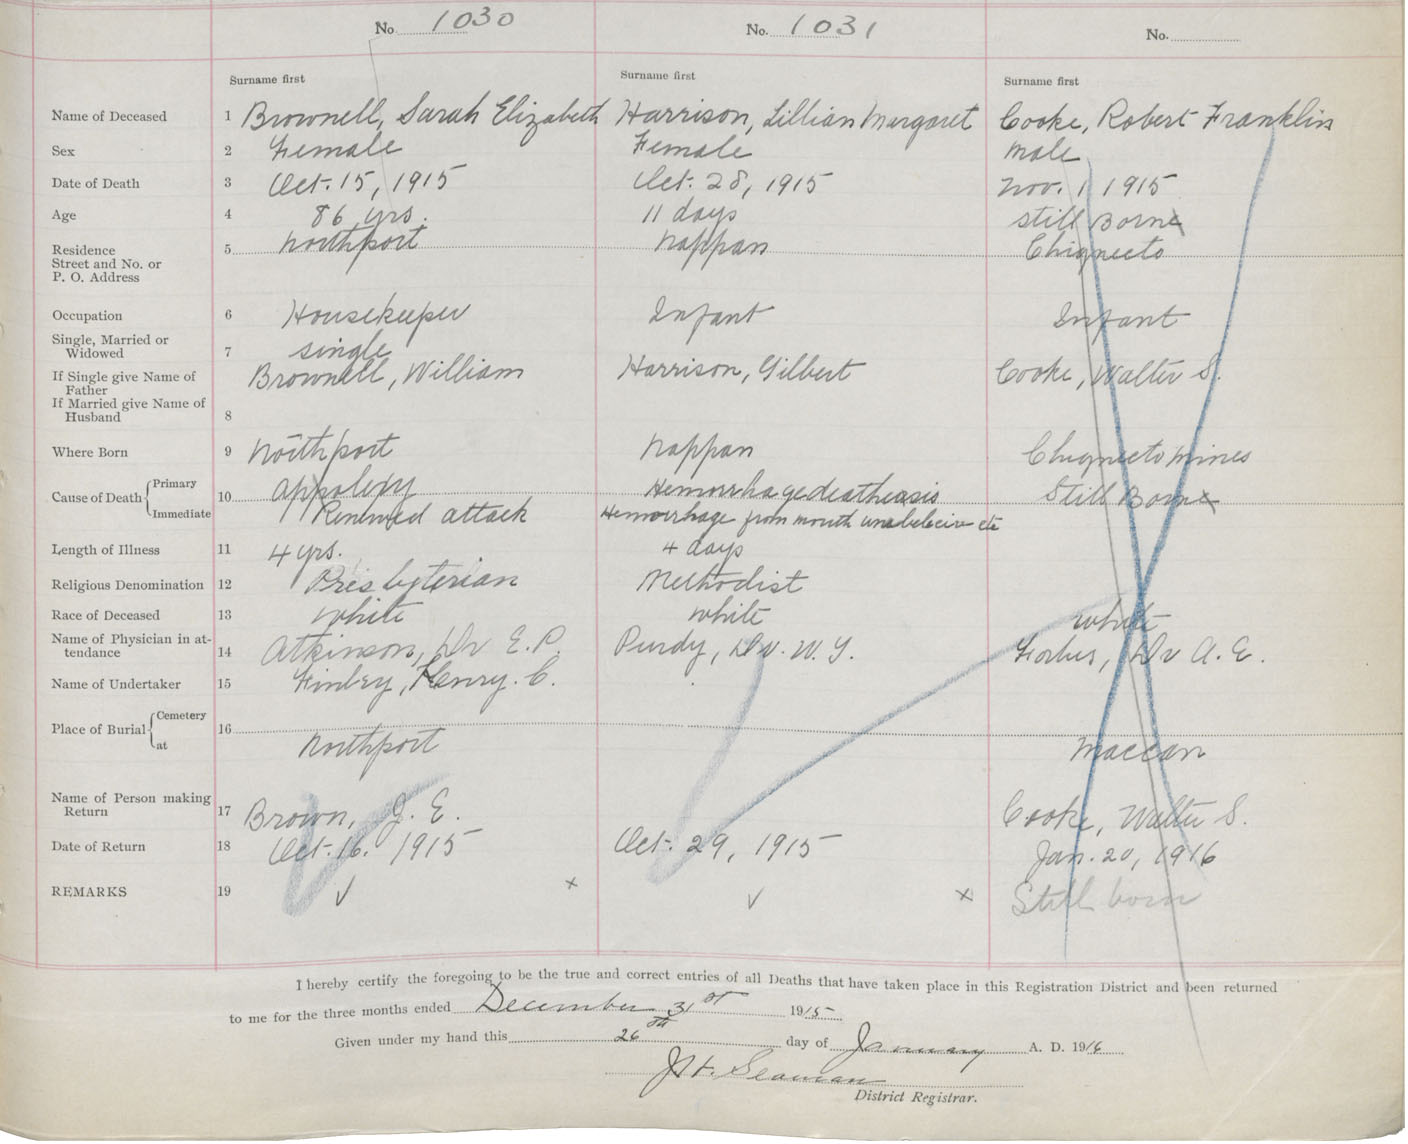 No. 1030 No. 1031 No.
Surname first Surname first Surname first
Name of Deceased 1 Brownell, Sarah Elizabeth Harrison, Lillian Margaret Cooke, Robert Franklin
Sex 2 Female Female Male
Date of Death 3 Oct. 15, 1915 Oct. 28, 1915 Nov. 1 1915
Age 4 86 yrs. 11 days Still Borne
Residence
Street and No. or 5 Northport Nappan Chignecto
P. O. Address
Occupation 6 Housekeeper Infant Infant
Single, Married or
Widowed 7 single
If Single give Name of
Father Brownell, William Harrison, Gilbert Cooke, Walter S.
If Married give Name of
Husband 8
Where Born 9 Northport Nappan Chignecto Mines
Cause of Death Primary 10 Appolexy Hemorrhage deatheasis Still Borne
Immediate Renewed attack Hemorrhage from mouth etc
Length of Illness 11 4 yrs. 4 days
Religious Denomination 12 Presbyterian Methodist
Race of Deceased 13 White White White
Name of Physician in at-
tendance 14 Atkinson, Dr E. P. Purdy, Dr. W. Y. Forbes, Dr A. E.
Name of Undertaker 15 Finley, Henry. C.
Place of Burial Cemetery 16
at Northport Maccan
Name of Person making
Return 17 Brown, J. E. Cooke, Walter S.
Date of Return 18 Oct. 16. 1915 Oct. 29, 1915 Jan. 20, 1916
REMARKS 19 ✓ x ✓ x Still born
I hereby certify the foregoing to be the true and correct entries of all Deaths that have taken place in this Registration District and been returned
to me for the three months ended December 31st 1915
Given under my hand this 26th day of January A. D. 1916
J. H. Seaman
District Registrar.